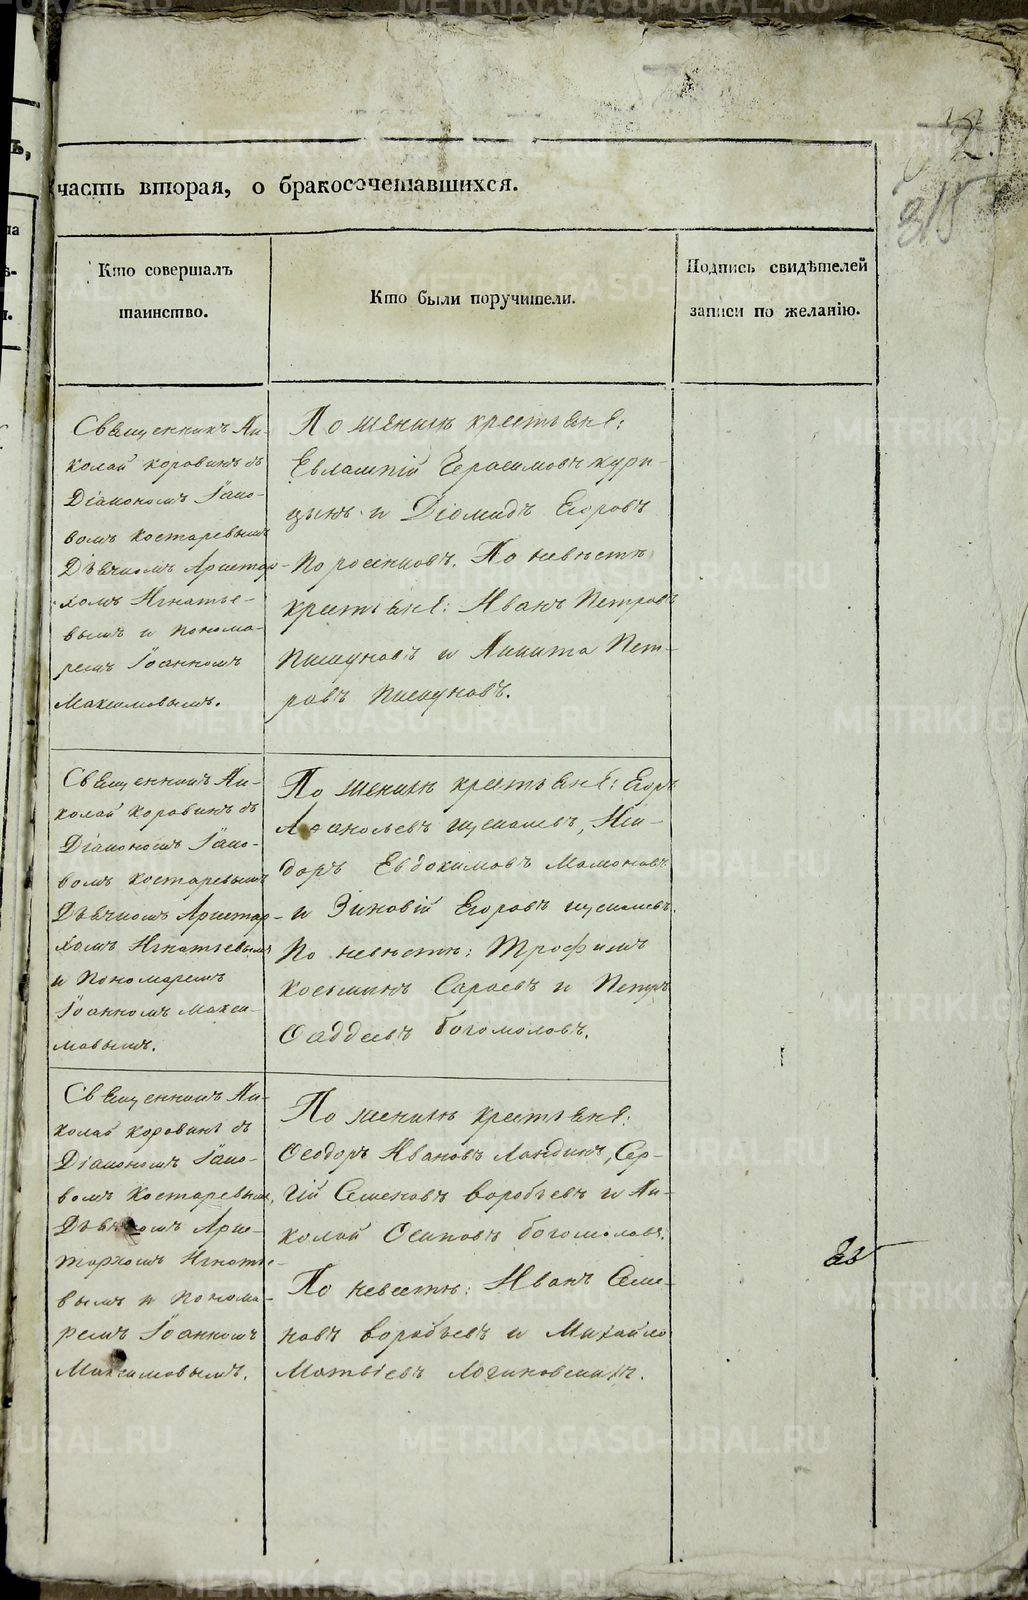 2.
315
часть вторая, о бракосочетавшихся.
Кто совершалъ
таинство.
Кто были поручители.
Подпись свидѣтелей
записи по желанію.
Священникъ Ни-
колай Коровинъ съ
Діакономъ Іако-
вомъ Костаревымъ
Дьячкомъ Аристар-
хомъ Игнатье-
вымъ и понома-
ремъ Іоанномъ
Максимовымъ.
По женихѣ крестьяне:
Евлампій Герасимовъ Кури-
цынъ и Діомидъ Егоровъ
Поросенковъ. По невѣстѣ
крестьяне: Иванъ Петровъ
и Никита Пет-
ровъ
Священникъ Ни-
колай Коровинъ съ
Діакономъ Іако-
вомъ Костаревымъ
Дьячкомъ Аристар-
хомъ Игнатьевымъ
и Пономаремъ
Іоанномъ Макси-
мовымъ.
По женихѣ крестьяне: Егоръ
Аѳанасьевъ Иси-
доръ Евдокимовъ Мамоновъ
и Зиновій Егоровъ
По невѣстѣ: Трофимъ
Козьминъ Сараевъ и Петръ
Ѳаддеевъ Богомоловъ.
Священникъ Ни-
колай Коровинъ съ
Діакономъ Іако-
вомъ Костаревымъ,
Дьячкомъ Арис-
тархомъ Игнатье-
вымъ и понома-
ремъ Іоанномъ
Максимовымъ.
По женихѣ крестьяне:
Ѳеодоръ Ивановъ Ландинъ, Сер-
гій Семеновъ Воробьевъ и Ни-
колай Осиповъ Богомоловъ.
По невѣстѣ: Иванъ Семе-
новъ Воробьевъ и Михайло
Матвѣевъ Логиновскихъ.
METRIKI.GASO-URAL.RU